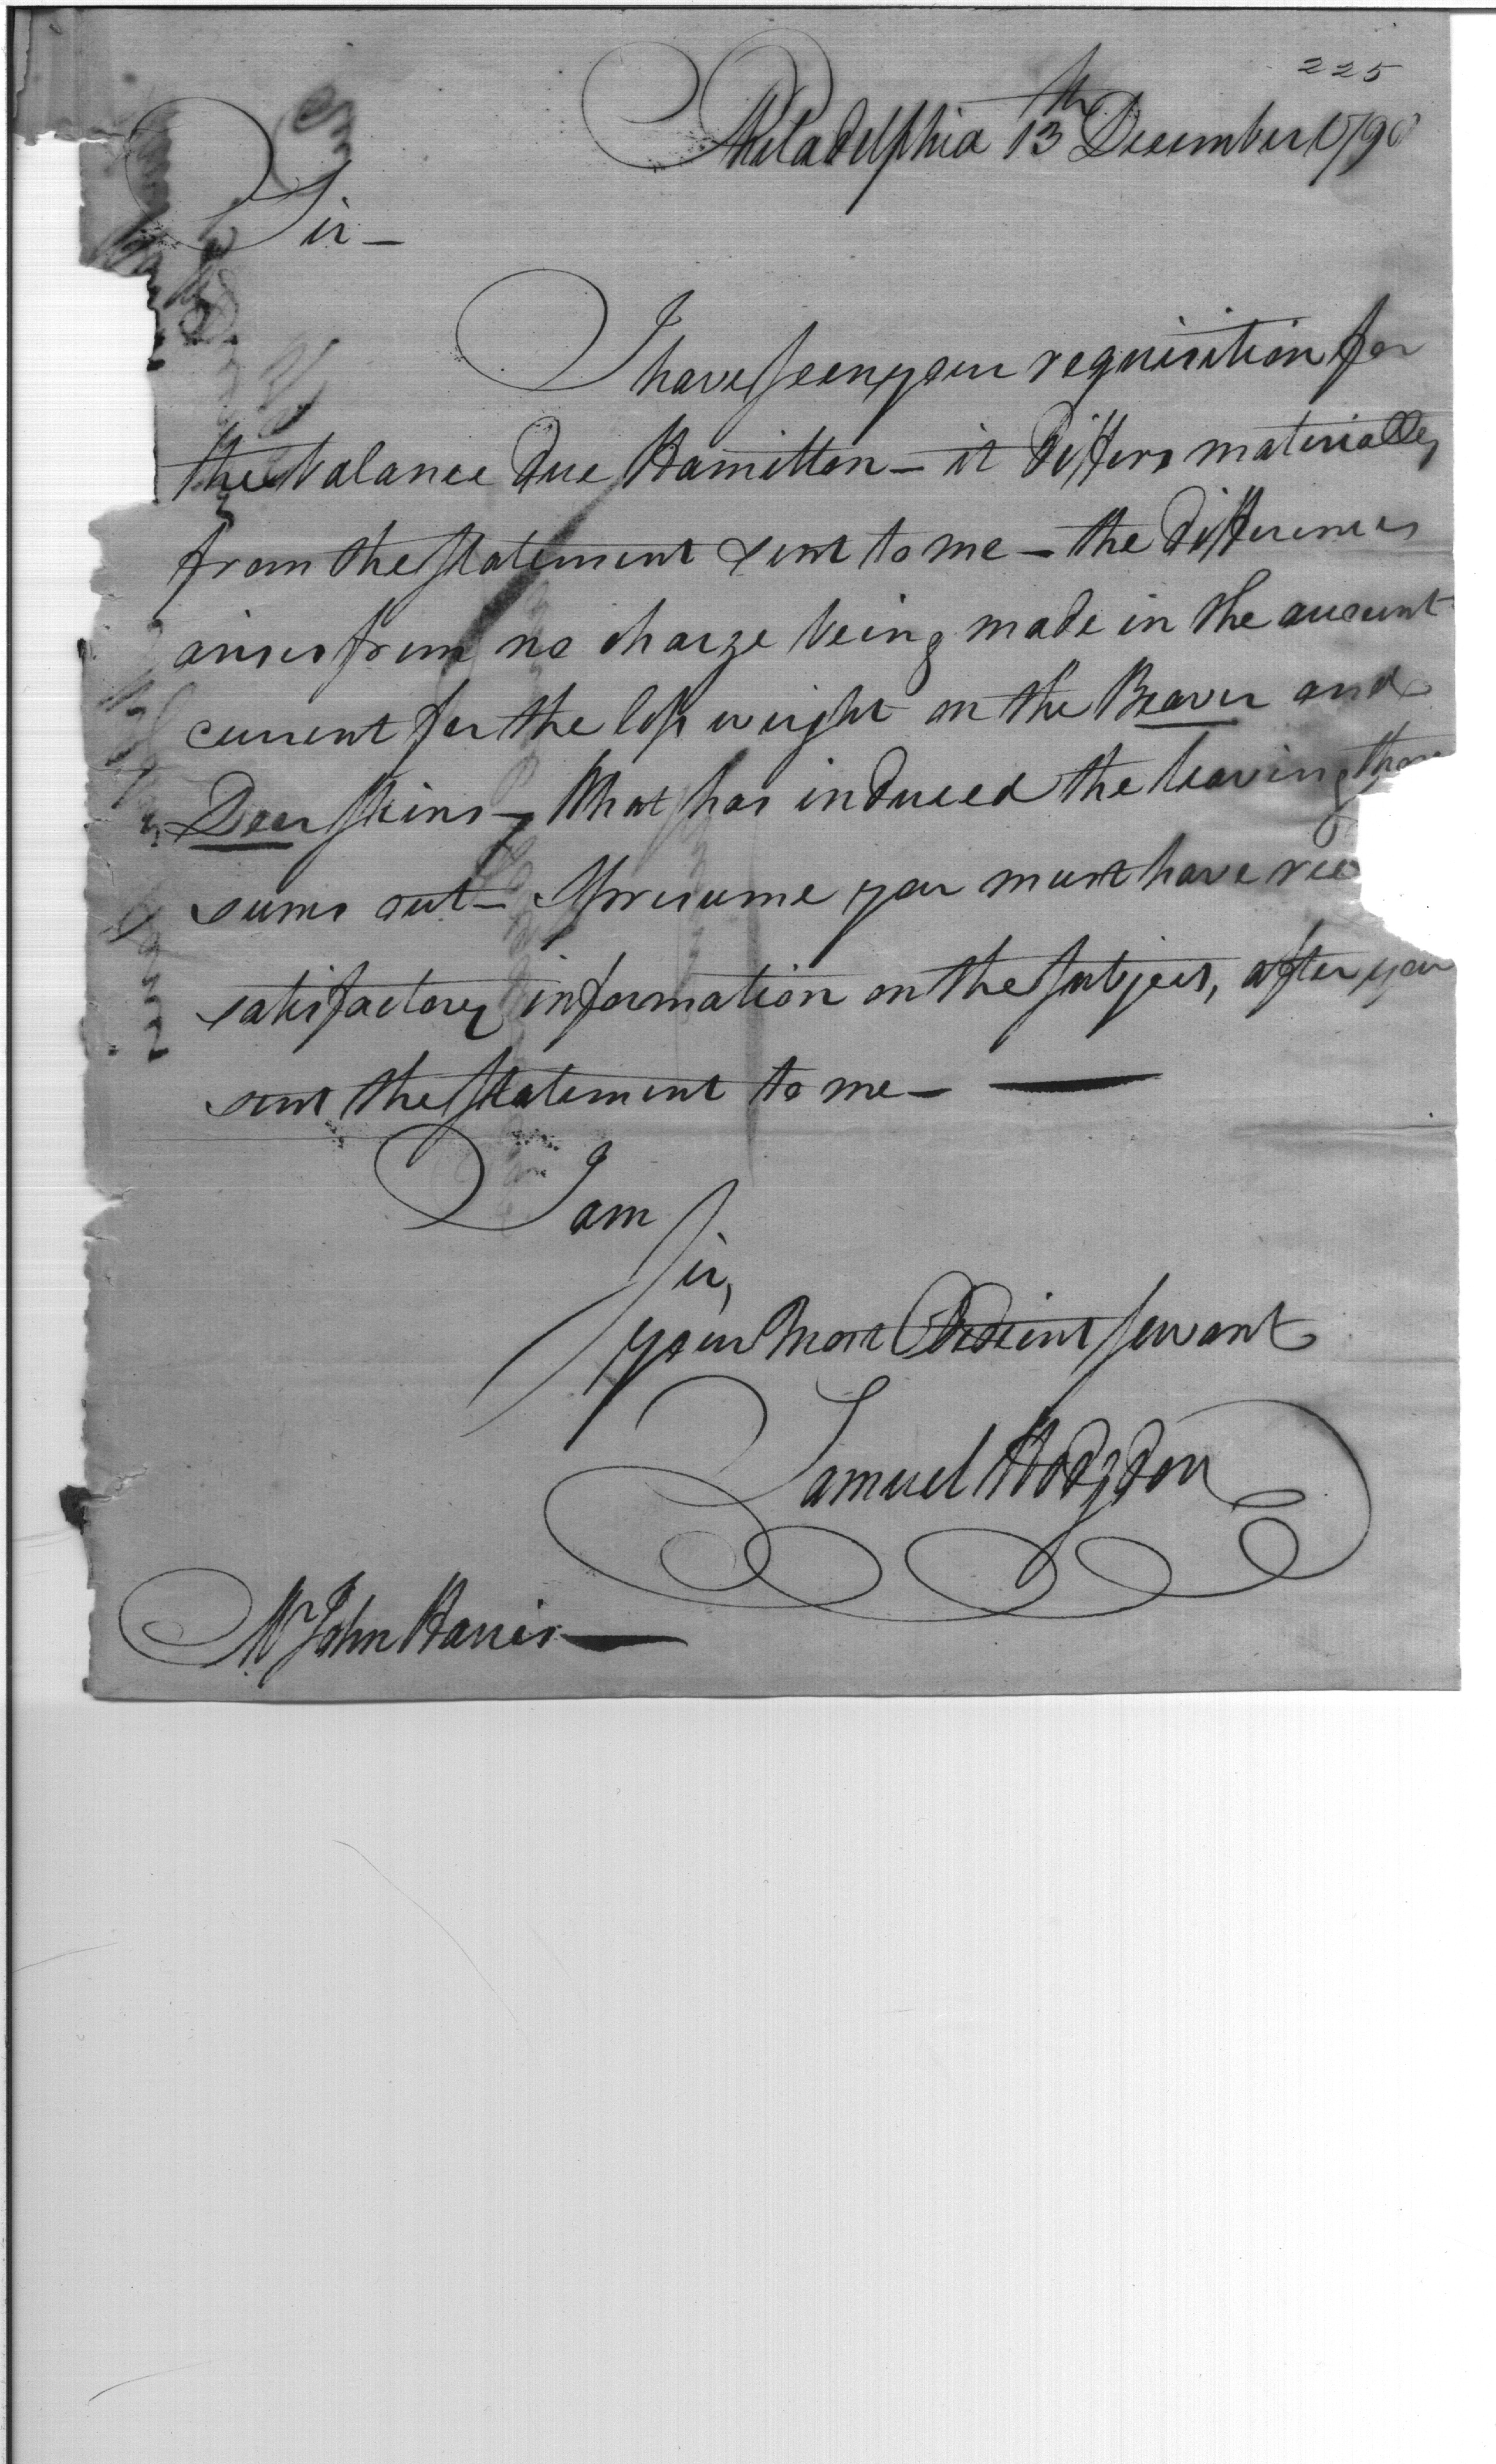 225
Philadelphia 13th December 179
Sir —
I have seen your requisition for
the balance due Hamilton — it differs materially
from the statement sent to me — the difference
arises from no charge being made in the account
current for the loss weight on the Beaver and
Deer skins — What has induced the leaving
sums out — I presume you must have
satisfactory information on the subject, after you
sent the statement to me —
I am
Sir,
your most Obedient servant
Samuel Hodgdon
Mr John Harris